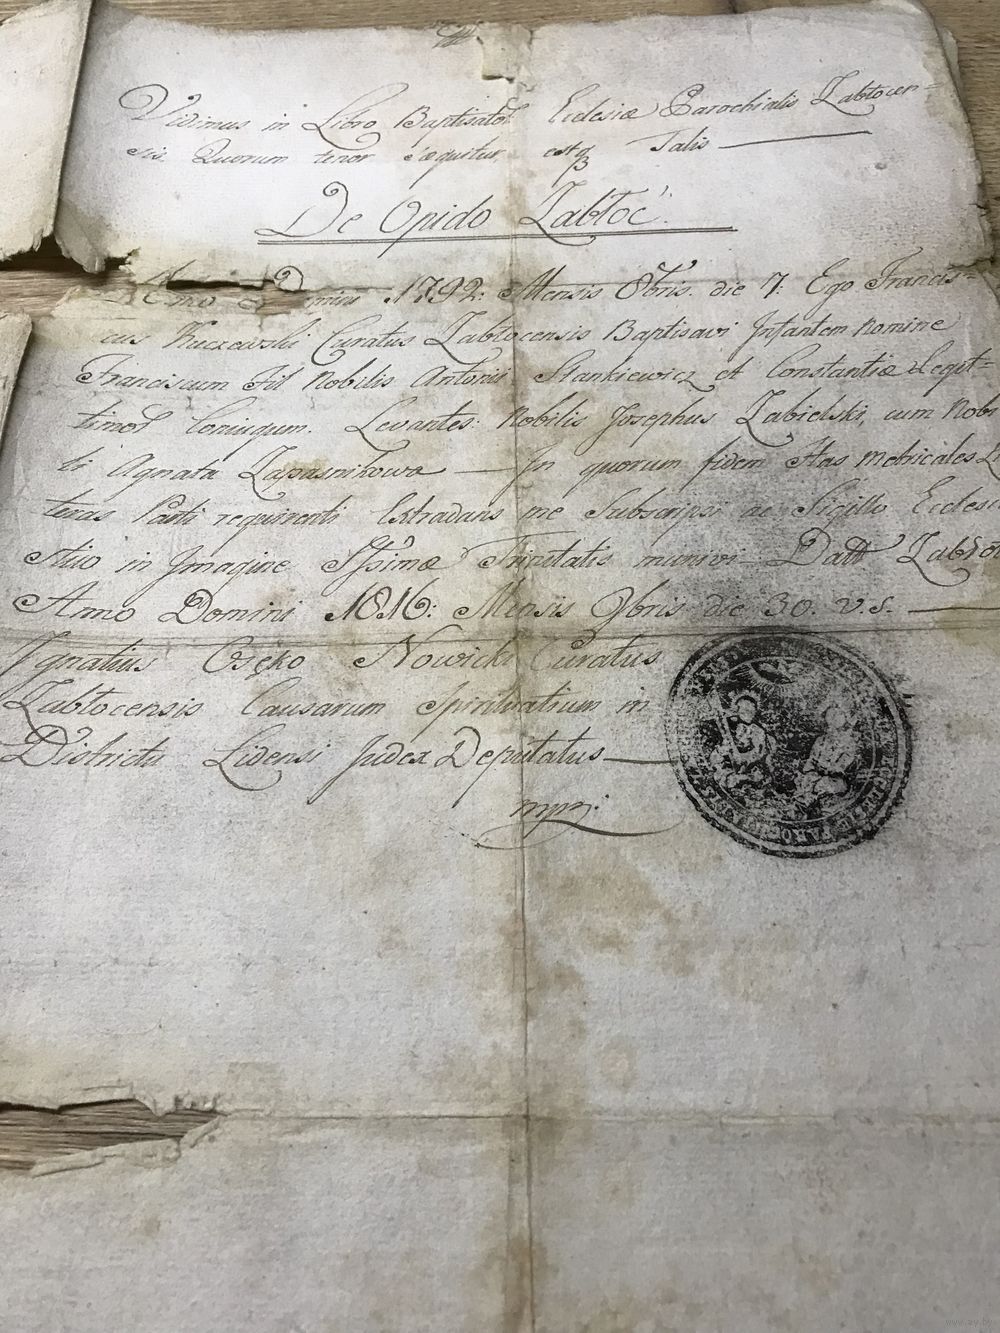 Vidimus in Libro Baptisator Ecclesiæ Parochialis Zabłocen=
sis Quorum tenor sæquitur estq Talis
De Opido Zabłoć
Anno Domini 1792: Mensis 8bris. die 7. Ego Francis=
cus Kuczewski Curatus Zabłocensis Baptisavi Infantem nomine
Franciscum Fil Nobilis Antonii Stankiewicz et Constantiæ Legit=
timor Coniugum. Levantes: Nobilis Josephus Zabielski, cum Nobi
li Agnata Zapasnikowa — In quorum fidem Has Metricales Li
teras Parti requirenti Extradans me Subscripsi ac Sigillo Ecclesi
stico in Imagine SSsimæ Trinitatis munivi — Datt Zabłoc
Anno Domini 1816: Mensis 9bris die 30. v. s.
Ignatius Osęko Nowicki Curatus
Zabłocensis Causarum Spiritualium in
Districtu Lidensi Judex Deputatus
mpp.
www.ay.by